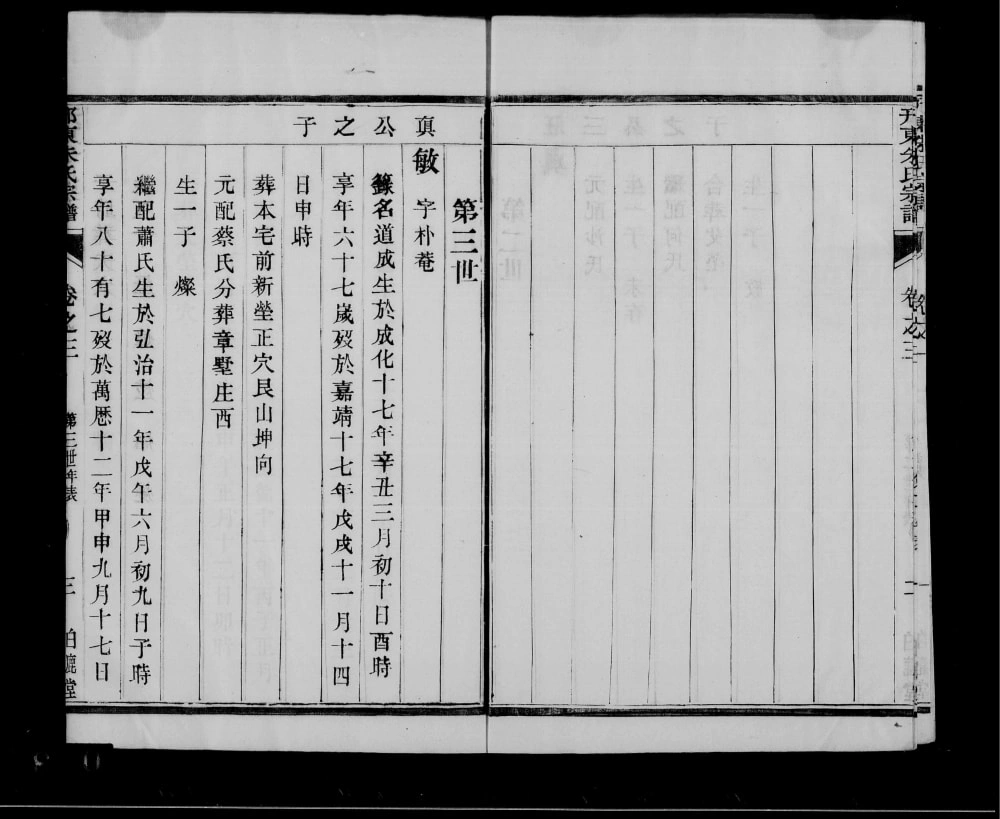 東朱氏宗譜
卷之三
二
第三世
真公之子
敏 字朴菴
錄名道成生於成化十七年辛丑三月初十日酉時
享年六十七歲歿於嘉靖十七年戊戌十一月十四
日申時
葬本宅前新塋正穴艮山坤向
元配蔡氏分葬章墅庄西
生一子 燦
繼配蕭氏生於弘治十一年戊午六月初九日子時
享年八十有七歿於萬歷十二年甲申九月十七日
東朱氏宗譜
卷之三
第三世年表
三
堂